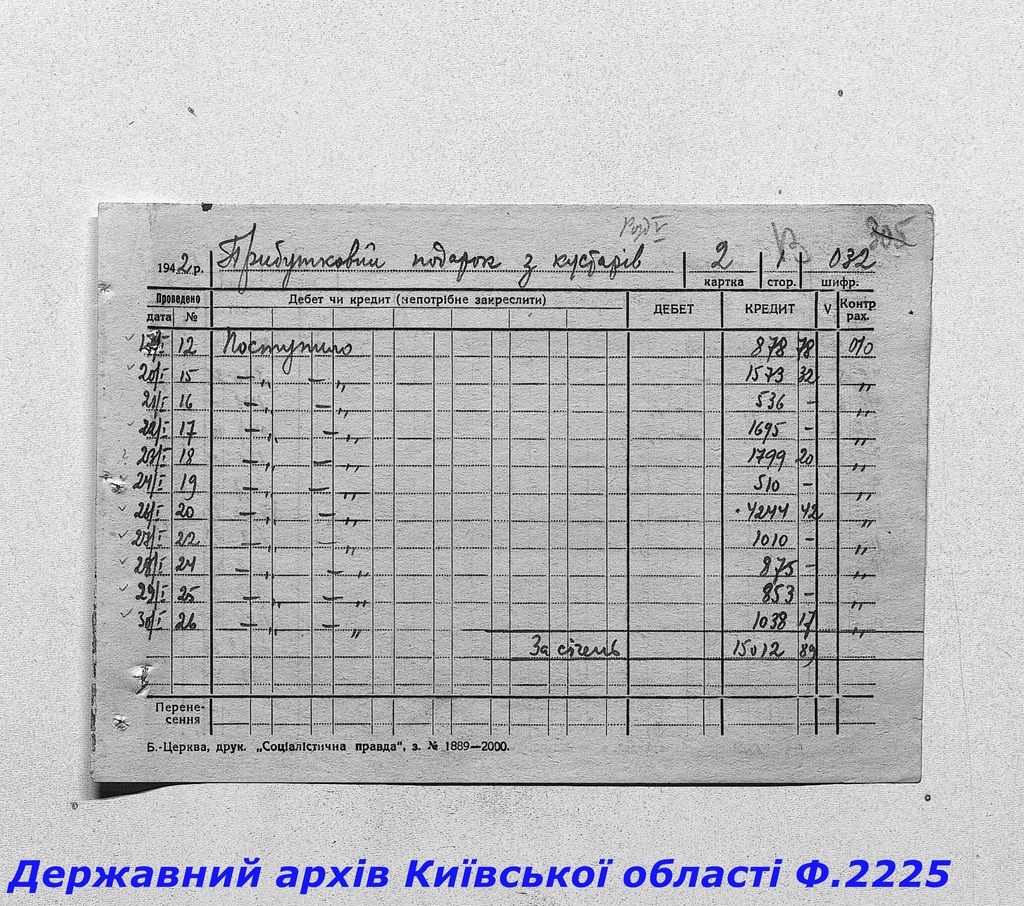 305
Розд V
1942 р. Прибутковий подарок з кустарів 2 032
картка стор. шифр.
Проведено Дебет чи кредит (непотрібне закреслити) ДЕБЕТ КРЕДИТ V Контр рах.
дата №
12 Поступило 878 78 010
20/I 15 — „ — „ 1573 32 „
21/I 16 — „ — „ 536 — „
22/I 17 — „ — „ 1695 — „
23/I 18 — „ — „ 1799 20 „
24/I 19 — „ — „ 510 — „
26/I 20 — „ — „ 4244 42 „
27/I 22 — „ — „ 1010 — „
28/I 24 — „ — „ 875 — „
29/I 25 — „ — „ 853 — „
30/I 26 — „ — „ 1038 17 „
За січень 15012 89
Перене-
сення
Б.-Церква, друк. „Соціалістична правда“, з. № 1889—2000.
Державний архів Київської області Ф.2225